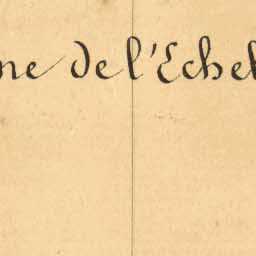 ne de l'Echel